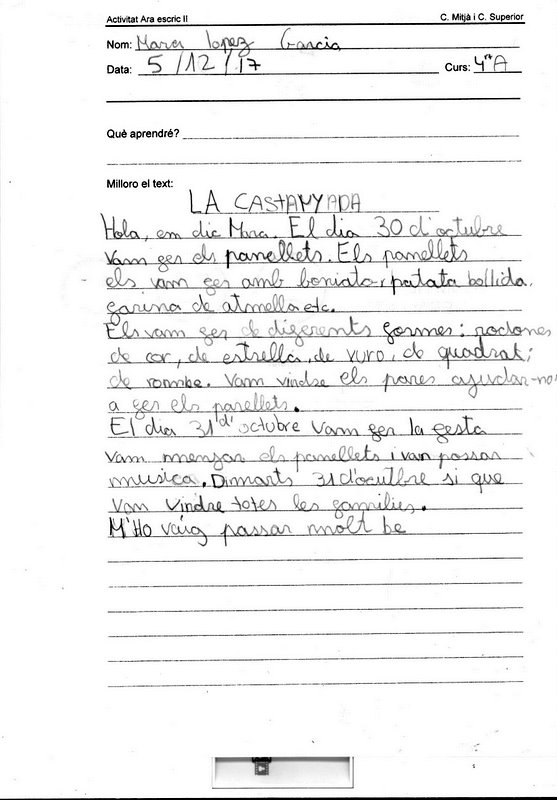 Activitat Ara escric II C. Mitjà i C. Superior
Nom: Mara lopez Garcia
Data: 5/12/17 Curs: 4rtA
Què aprendré?
Milloro el text:
LA CASTANYADA
Hola, em dic Mara. El dia 30 d'octubre
vam fer els panellets. Els panellets
els vam fer amb boniato, patata bollida,
farina de atmella etc.
Els vam fer de diferents formes: rodones
de cor, de estrella, de xuro, de quadrat,
de rombe. Vam vindre els pares ajudar-nos
a fer els parellets.
El dia 31 d'octubre vam fer la festa
vam menjar els panellets i van possar
musica. Dimarts 31 d'ocutbre si que
van vindre totes les families.
M'Ho vaig passar molt be